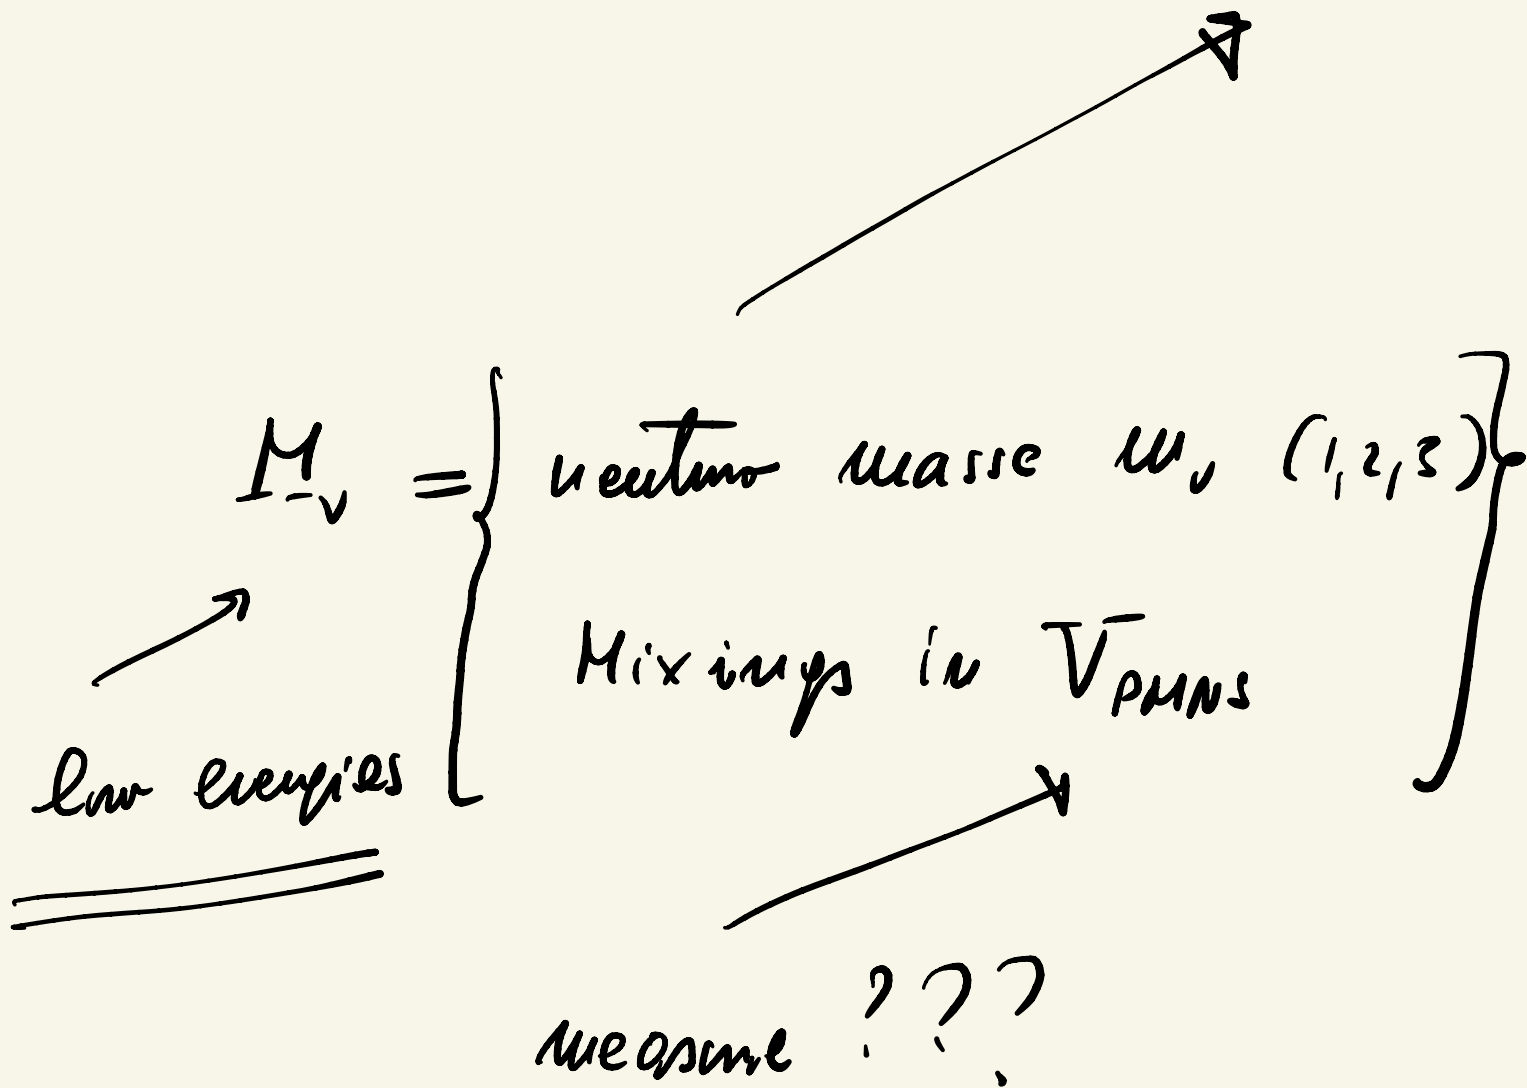 M_ν = { neutrino masse m_ν (1,2,3) }
Mixings in V_PMNS
low energies
measure ???